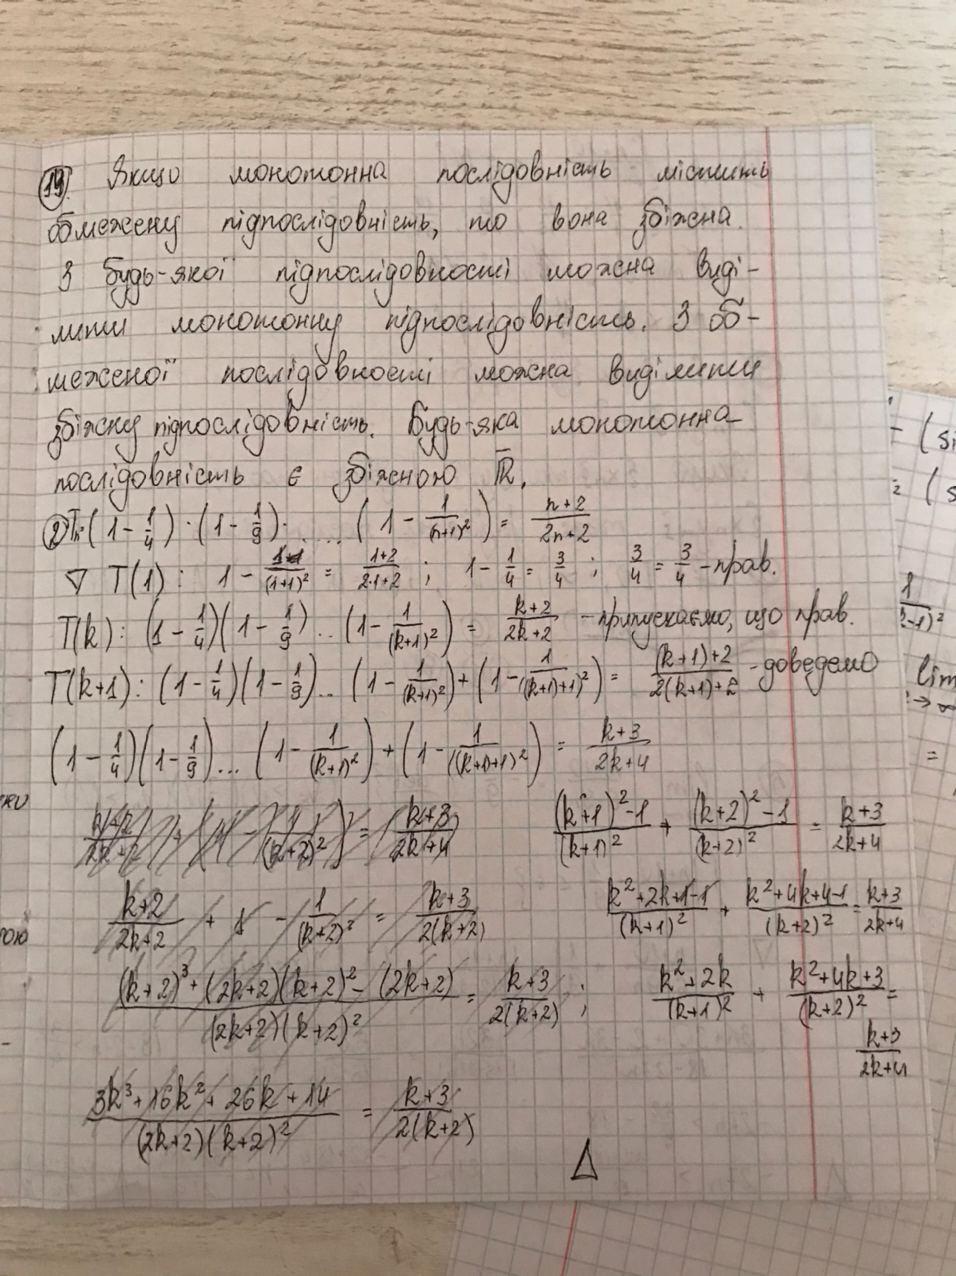 19. Якщо монотонна послідовність містить
обмежену підпослідовність, то вона збіжна.
З будь-якої підпослідовності можна виді-
лити монотонну підпослідовність. З об-
меженої послідовності можна виділити
збіжну підпослідовність. Будь-яка монотонна
послідовність є збіжною R̅.
② (1 - 1/4) · (1 - 1/9) · .... (1 - 1/(n+1)²) = (n+2)/(2n+2)
∇ T(1): 1 - 1/(1+1)² = (1+2)/(2·1+2) ; 1 - 1/4 = 3/4 ; 3/4 = 3/4 - прав.
T(k): (1 - 1/4)(1 - 1/9) ... (1 - 1/(k+1)²) = (k+2)/(2k+2) - припускаємо, що прав.
T(k+1): (1 - 1/4)(1 - 1/9) ... (1 - 1/(k+1)²) + (1 - 1/((k+1)+1)²) = ((k+1)+2)/(2(k+1)+2) - доведемо
(1 - 1/4)(1 - 1/9) ... (1 - 1/(k+1)²) + (1 - 1/((k+1)+1)²) = (k+3)/(2k+4)
= (k+3)/(2k+4) ((k+1)²-1)/(k+1)² + ((k+2)²-1)/(k+2)² = (k+3)/(2k+4)
(k+2)/(2k+2) + 1 - 1/(k+2)² = (k+3)/(2(k+2)) (k²+2k+1-1)/(k+1)² + (k²+4k+4-1)/(k+2)² = (k+3)/(2k+4)
((k+2)³+(2k+2)(k+2)²-(2k+2))/((2k+2)(k+2)²) = (k+3)/(2(k+2)) ; (k²+2k)/(k+1)² + (k²+4k+3)/(k+2)² =
(k+3)/(2k+4)
(3k³+16k²+26k+14)/((2k+2)(k+2)²) = (k+3)/(2(k+2))
Δ
lim